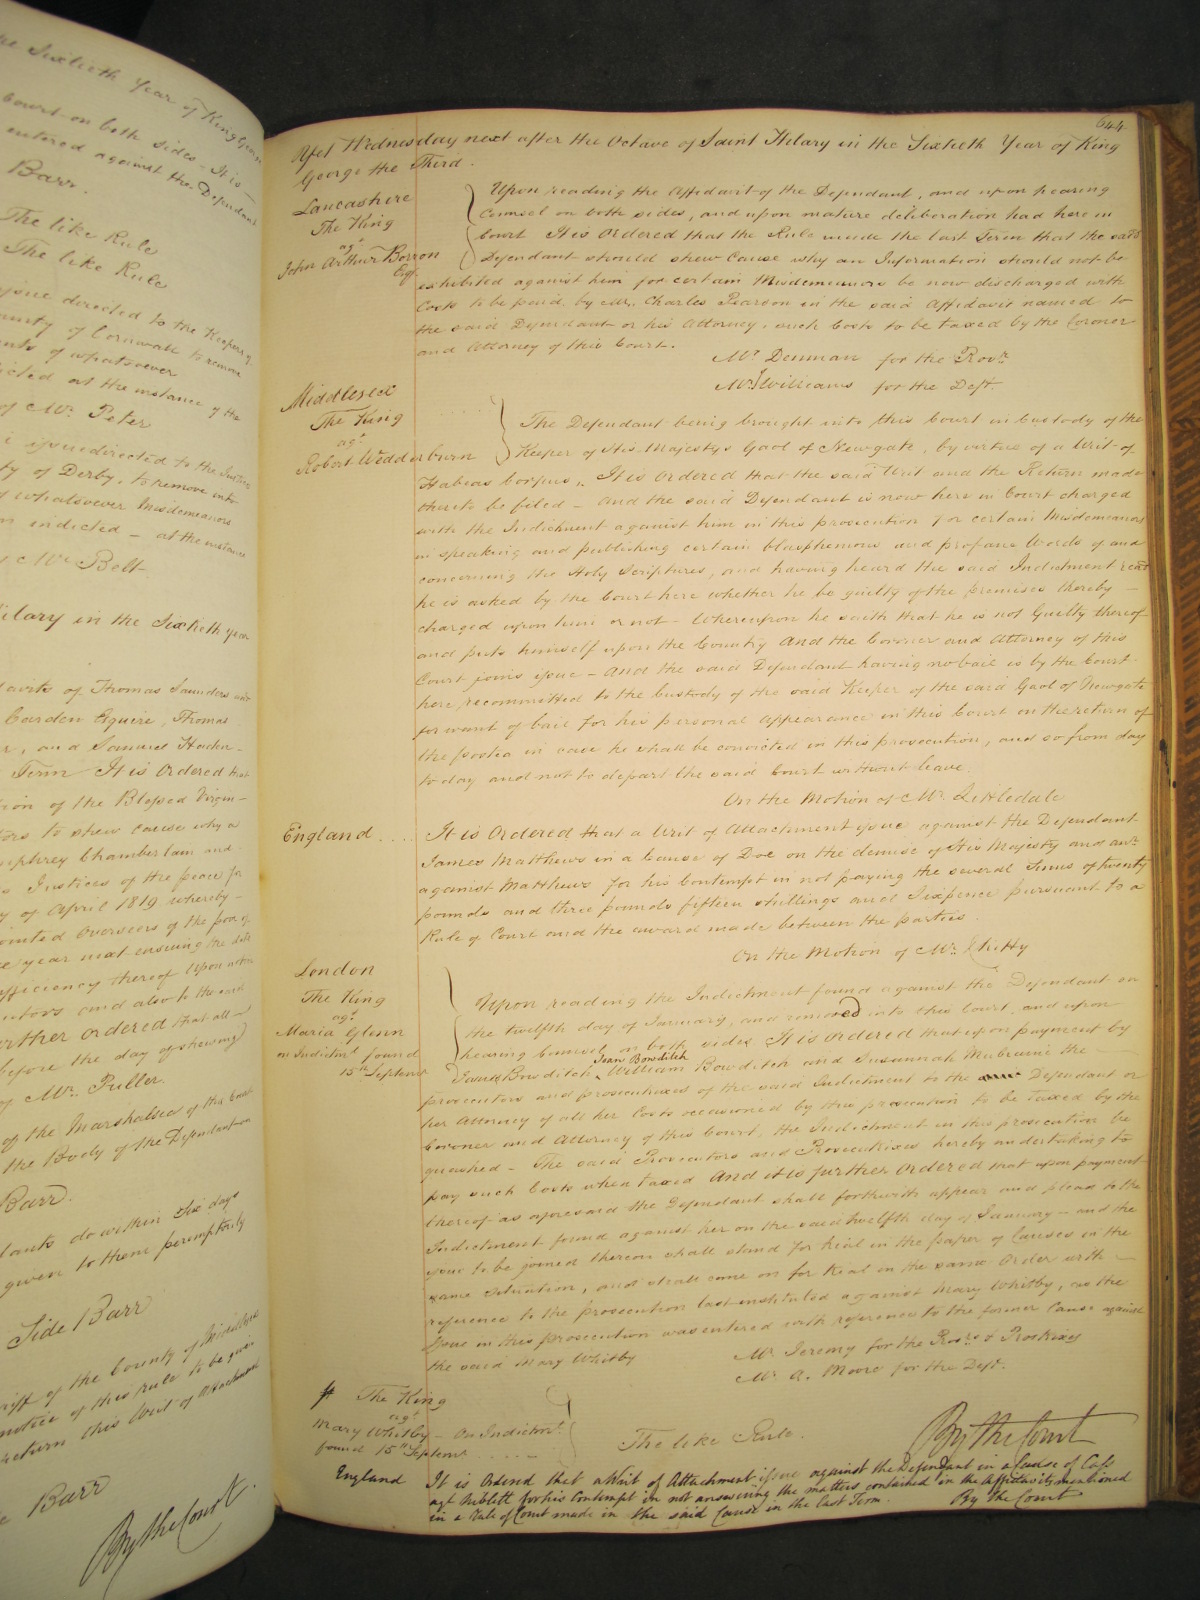 the Sixtieth Year of King George
Court on both sides - It is
entered against the Defendant
Barr.
The like Rule
The like Rule
issue directed to the Keeper of
County of Cornwall to remove
of whatsoever
at the instance of the
of Mr. Peter
issue directed to the Justices
of Derby, to remove into
whatsoever Misdemeanors
indicted - at the instance
Mr. Bolt
Hilary in the Sixtieth year
of Thomas Saunders
Carden Esquire, Thomas
and Samuel
Term It is Ordered that
of the Blessed Virgin
to shew cause why a
Humphrey Chamberlain and
Justices of the peace for
of April 1819 whereby
Overseers of the poor of
year next ensuing the date
thereof upon notice
and also to the said
further ordered that all
before the day of shewing
Mr. Puller.
of the Marshalsea of this Court
the Body of the Defendant on
Barr.
do within Six days
given to them peremptorily
Side Barr
of the County of Middlesex
notice of this rule to be given
return this Writ of Attachment
Barr
By the Court.
644
Yet Wednesday next after the Octave of Saint Hilary in the Sixtieth Year of King
George the Third.
Lancashire
The King
agt
John Arthur Borron
Esqr
Upon reading the Affidavit of the Defendant, and upon hearing
Counsel on both sides, and upon mature deliberation had here in
Court It is Ordered that the Rule made the last Term that the said
Defendant should shew Cause why an Information should not be
exhibited against him for certain Misdemeanors be now discharged with
Costs to be paid by Mr. Charles Pearson in the said Affidavit named to
the said Defendant or his Attorney, such Costs to be taxed by the Coroner
and Attorney of this Court.
Mr Denman for the Prosr
Mr J Williams for the Deft.
Middlesex
The King
agt
Robert Wedderburn
The Defendant being brought into this Court in Custody of the
Keeper of His Majestys Gaol of Newgate, by virtue of a Writ of
Habeas Corpus, It is ordered that the said Writ and the Return made
thereto be filed - And the said Defendant is now here in Court charged
with the Indictment against him in this prosecution for certain Misdemeanors
in speaking and publishing certain blasphemous and profane Words of and
concerning the Holy Scriptures, and having heard the said Indictment read
he is asked by the Court here whether he be guilty of the premises thereby -
charged upon him or not - Whereupon he saith that he is not Guilty thereof
and puts himself upon the Country And the Coroner and Attorney of this
Court joins issue - And the said Defendant having no bail is by the Court
here recommitted to the Custody of the said Keeper of the said Gaol of Newgate
for want of bail for his personal appearance in this Court on the return of
the postea in case he shall be convicted in this prosecution, and so from day
to day and not to depart the said Court without leave.
On the Motion of Mr. Littledale
England ....
It is Ordered that a Writ of Attachment issue against the Defendant
James Matthews in a Cause of Doe on the demise of His Majesty and anr
against Matthews for his Contempt in not paying the several Sums of twenty
pounds and three pounds fifteen shillings and Sixpence pursuant to a
Rule of Court and the award made between the parties.
On the Motion of Mr. Chitty
London
The King
agt
Maria Glenn
on Indictmt found
15th Septemr
Upon reading the Indictment found against the Defendant on
the twelfth day of January, and removed into this Court, and upon
hearing Counsel on both sides It is ordered that upon payment by
Joan Bowditch
James Bowditch, William Bowditch and Susannah Mulraine the
prosecutors and prosecutrixes of the said Indictment to the Defendant or
her Attorney of all her Costs occasioned by this prosecution to be taxed by the
Coroner and Attorney of this Court, the Indictment in this prosecution be
quashed - The said Prosecutors and Prosecutrixes hereby undertaking to
pay such Costs when taxed And it is further Ordered that upon payment
thereof as aforesaid the Defendant shall forthwith appear and plead to the
Indictment found against her on the said twelfth day of January - and the
issue to be joined thereon shall stand for trial in the paper of Causes in the
same situation, and shall come on for trial in the same Order with
reference to the prosecution last instituted against Mary Whitby, as the
Issue in this prosecution was entered with reference to the former Cause against
the said Mary Whitby
Mr. Jeremy for the Prosrs & Prosxixes
Mr. A. Moore for the Deft.
The King
agt
Mary Whitby - On Indictmt
found 15th Septemr
The like Rule.
By the Court
England
It is Ordered that a Writ of Attachment issue against the Defendant in a Cause of Cass
agt Sublett for his Contempt in not answering the matters contained in the Affidavits mentioned
in a Rule of Court made in the said Cause in the last Term.
By the Court